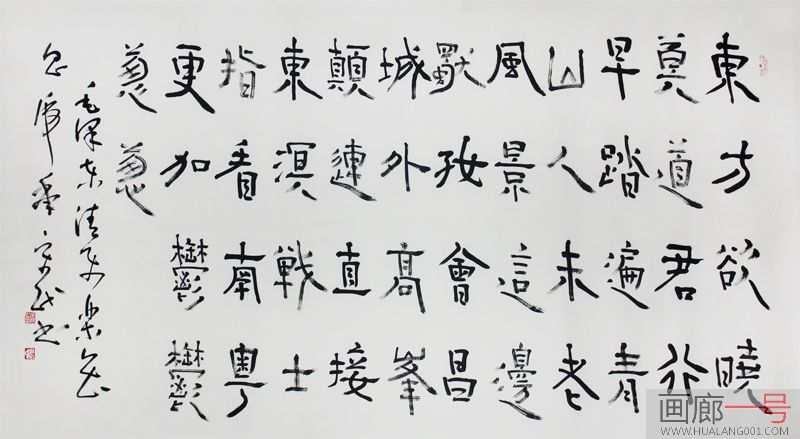 東方欲曉
莫道君行
早踏遍青
山人未老
風景這邊
獨好會昌
城外高峯
顛連直接
東溟戰士
指看南粵
更加鬱鬱
蔥蔥
毛澤東清平樂會昌
年 書
画廊一号
WWW.HUALANG001.COM